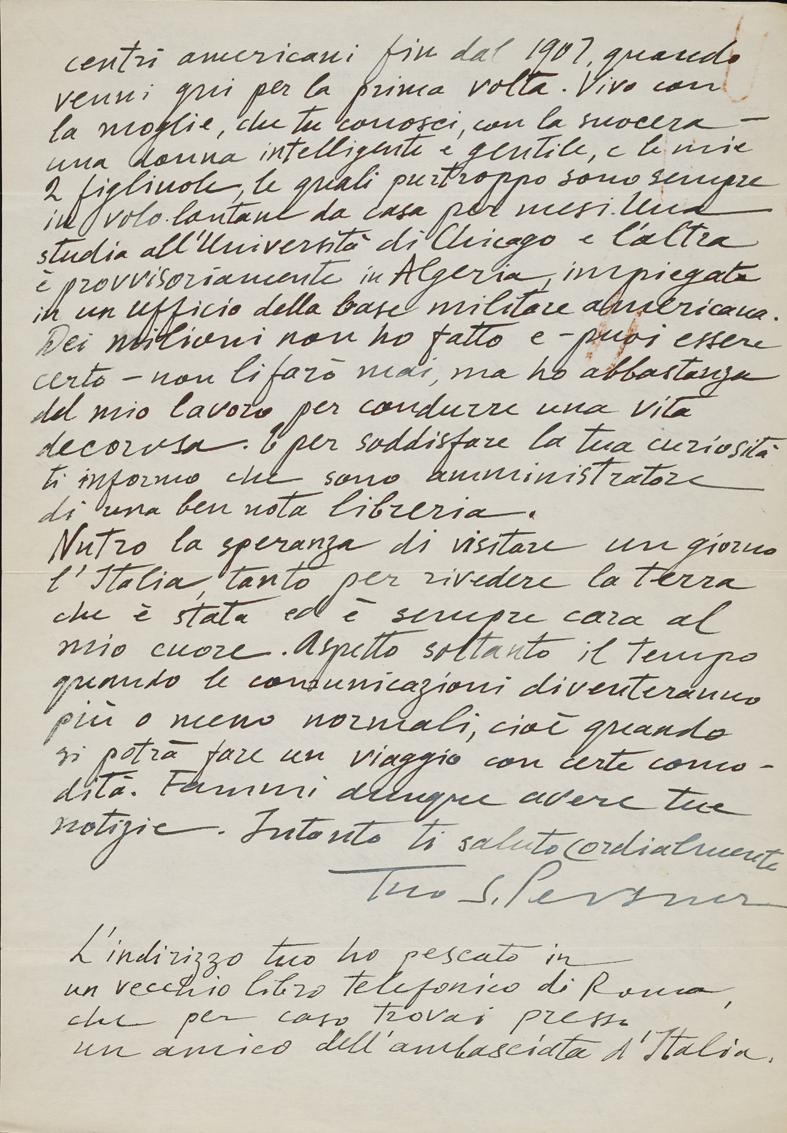 centri americani fin dal 1907, quando
venni qui per la prima volta. Vivo con
la moglie, che tu conosci, con la suocera –
una donna intelligente e gentile, e le mie
2 figliuole, le quali purtroppo sono sempre
in volo lontane da casa per mesi. Una
studia all'Università di Chicago e l'altra
è provvisoriamente in Algeria, impiegata
in un ufficio della base militare americana.
Dei milioni non ho fatto e – puoi essere
certo – non li farò mai, ma ho abbastanza
del mio lavoro per condurre una vita
decorosa. E per soddisfare la tua curiosità
ti informo che sono amministratore
di una ben nota libreria.
Nutro la speranza di visitare un giorno
l'Italia, tanto per rivedere la terra
che è stata ed è sempre cara al
mio cuore. Aspetto soltanto il tempo
quando le comunicazioni diventeranno
più o meno normali, cioè quando
si potrà fare un viaggio con certe como-
dità. Fammi dunque avere tue
notizie. Intanto ti saluto cordialmente
Tuo S. Pevsner
L'indirizzo tuo ho pescato in
un vecchio libro telefonico di Roma,
che per caso trovai presso
un amico dell'ambasciata d'Italia.